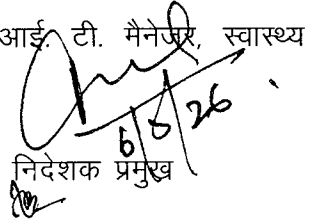 आई. टी. मैनेजर, स्वास्थ्य
6/8/26
निदेशक प्रमुख